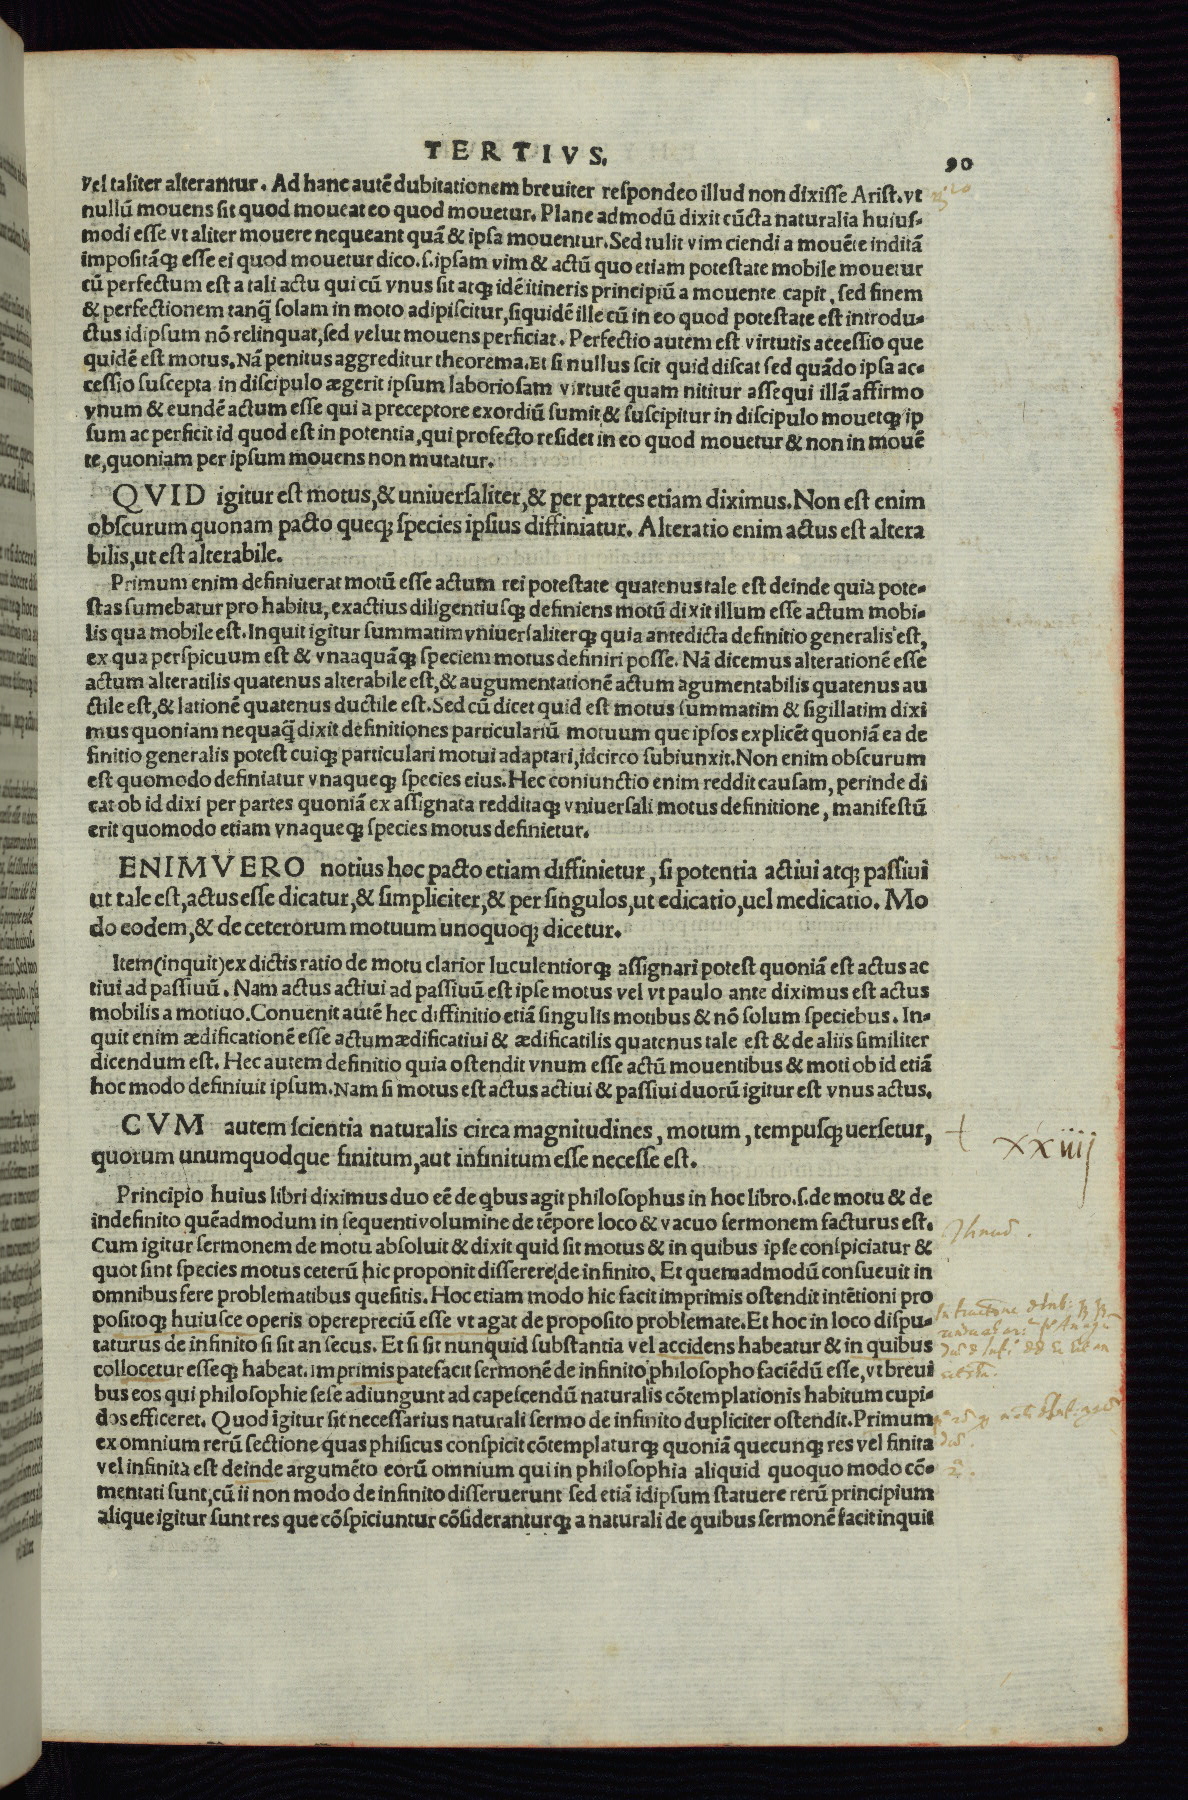 TERTIVS.
90
vel taliter alterantur. Ad hanc autē dubitationem breuiter respondeo illud non dixisse Arist. vt
nullū mouens sit quod moueat eo quod mouetur. Plane admodū dixit cūcta naturalia huius-
modi esse vt aliter mouere nequeant quā & ipsa mouentur. Sed tulit vim ciendi a mouēte inditā
impositāq; esse ei quod mouetur dico.s.ipsam vim & actū quo etiam potestate mobile mouetur
cū perfectum est a tali actu qui cū vnus sit atq; idē itineris principiū a mouente capit, sed finem
& perfectionem tanq̄ solam in moto adipiscitur, siquidē ille cū in eo quod potestate est introdu-
ctus idipsum nō relinquat, sed velut mouens perficiat. Perfectio autem est virtutis accessio que
quidē est motus. Nā penitus aggreditur theorema. Et si nullus scit quid discat sed quādo ipsa ac-
cessio suscepta in discipulo ægerit ipsum laboriosam virtutē quam nititur assequi illā affirmo
vnum & eundē actum esse qui a preceptore exordiū sumit & suscipitur in discipulo mouetq; ip
sum ac perficit id quod est in potentia, qui profecto residet in eo quod mouetur & non in mouē
te, quoniam per ipsum mouens non mutatur.
QVID igitur est motus, & uniuersaliter, & per partes etiam diximus. Non est enim
obscurum quonam pacto queq; species ipsius diffiniatur. Alteratio enim actus est altera
bilis, ut est alterabile.
Primum enim definiuerat motū esse actum rei potestate quatenus tale est deinde quia pote-
stas sumebatur pro habitu, exactius diligentiusq; definiens motū dixit illum esse actum mobi-
lis qua mobile est. Inquit igitur summatim vniuersaliterq; quia antedicta definitio generalis est,
ex qua perspicuum est & vnaaquāq; speciem motus definiri posse. Nā dicemus alterationē esse
actum alteratilis quatenus alterabile est, & augumentationē actum agumentabilis quatenus au
ctile est, & lationē quatenus ductile est. Sed cū dicet quid est motus summatim & sigillatim dixi
mus quoniam nequaq̄ dixit definitiones particulariū motuum que ipsos explicēt quoniā ea de
finitio generalis potest cuiq; particulari motui adaptari, idcirco subiunxit. Non enim obscurum
est quomodo definiatur vnaqueq; species eius. Hec coniunctio enim reddit causam, perinde di
cat ob id dixi per partes quoniā ex assignata redditaq; vniuersali motus definitione, manifestū
erit quomodo etiam vnaqueq; species motus definietur.
ENIMVERO notius hoc pacto etiam diffinietur, si potentia actiui atq; passiui
ut tale est, actus esse dicatur, & simpliciter, & per singulos, ut edicatio, uel medicatio. Mo
do eodem, & de ceterorum motuum unoquoq; dicetur.
Item (inquit) ex dictis ratio de motu clarior luculentiorq; assignari potest quoniā est actus ac
tiui ad passiuū. Nam actus actiui ad passiuū est ipse motus vel vt paulo ante diximus est actus
mobilis a motiuo. Conuenit autē hec diffinitio etiā singulis motibus & nō solum speciebus. In-
quit enim ædificationē esse actum ædificatiui & ædificatilis quatenus tale est & de aliis similiter
dicendum est. Hec autem definitio quia ostendit vnum esse actū mouentibus & moti ob id etiā
hoc modo definiuit ipsum. Nam si motus est actus actiui & passiui duorū igitur est vnus actus.
CVM autem scientia naturalis circa magnitudines, motum, tempusq; uersetur,
quorum unumquodque finitum, aut infinitum esse necesse est.
xxiiij
Principio huius libri diximus duo eē de q̄bus agit philosophus in hoc libro.s. de motu & de
indefinito quēadmodum in sequenti volumine de tēpore loco & vacuo sermonem facturus est.
Cum igitur sermonem de motu absoluit & dixit quid sit motus & in quibus ipse conspiciatur &
quot sint species motus ceterū hic proponit disserere de infinito. Et quemadmodū consueuit in
omnibus fere problematibus quesitis. Hoc etiam modo hic facit imprimis ostendit intētioni pro
positoq; huiusce operis operepreciū esse vt agat de proposito problemate. Et hoc in loco dispu-
taturus de infinito si sit an secus. Et si sit nunquid substantia vel accidens habeatur & in quibus
collocetur esseq; habeat. Imprimis patefacit sermonē de infinito philosopho faciēdū esse, vt breui
bus eos qui philosophie sese adiungunt ad capescendū naturalis cōtemplationis habitum cupi-
dos efficeret. Quod igitur sit necessarius naturali sermo de infinito dupliciter ostendit. Primum
ex omnium rerū sectione quas phisicus conspicit cōtemplaturq; quoniā quecunq; res vel finita
vel infinita est deinde argumēto eorū omnium qui in philosophia aliquid quoquo modo cō-
mentati sunt, cū ii non modo de infinito disseruerunt sed etiā idipsum statuere rerū principium
alique igitur sunt res que cōspiciuntur cōsideranturq; a naturali de quibus sermonē facit inquit